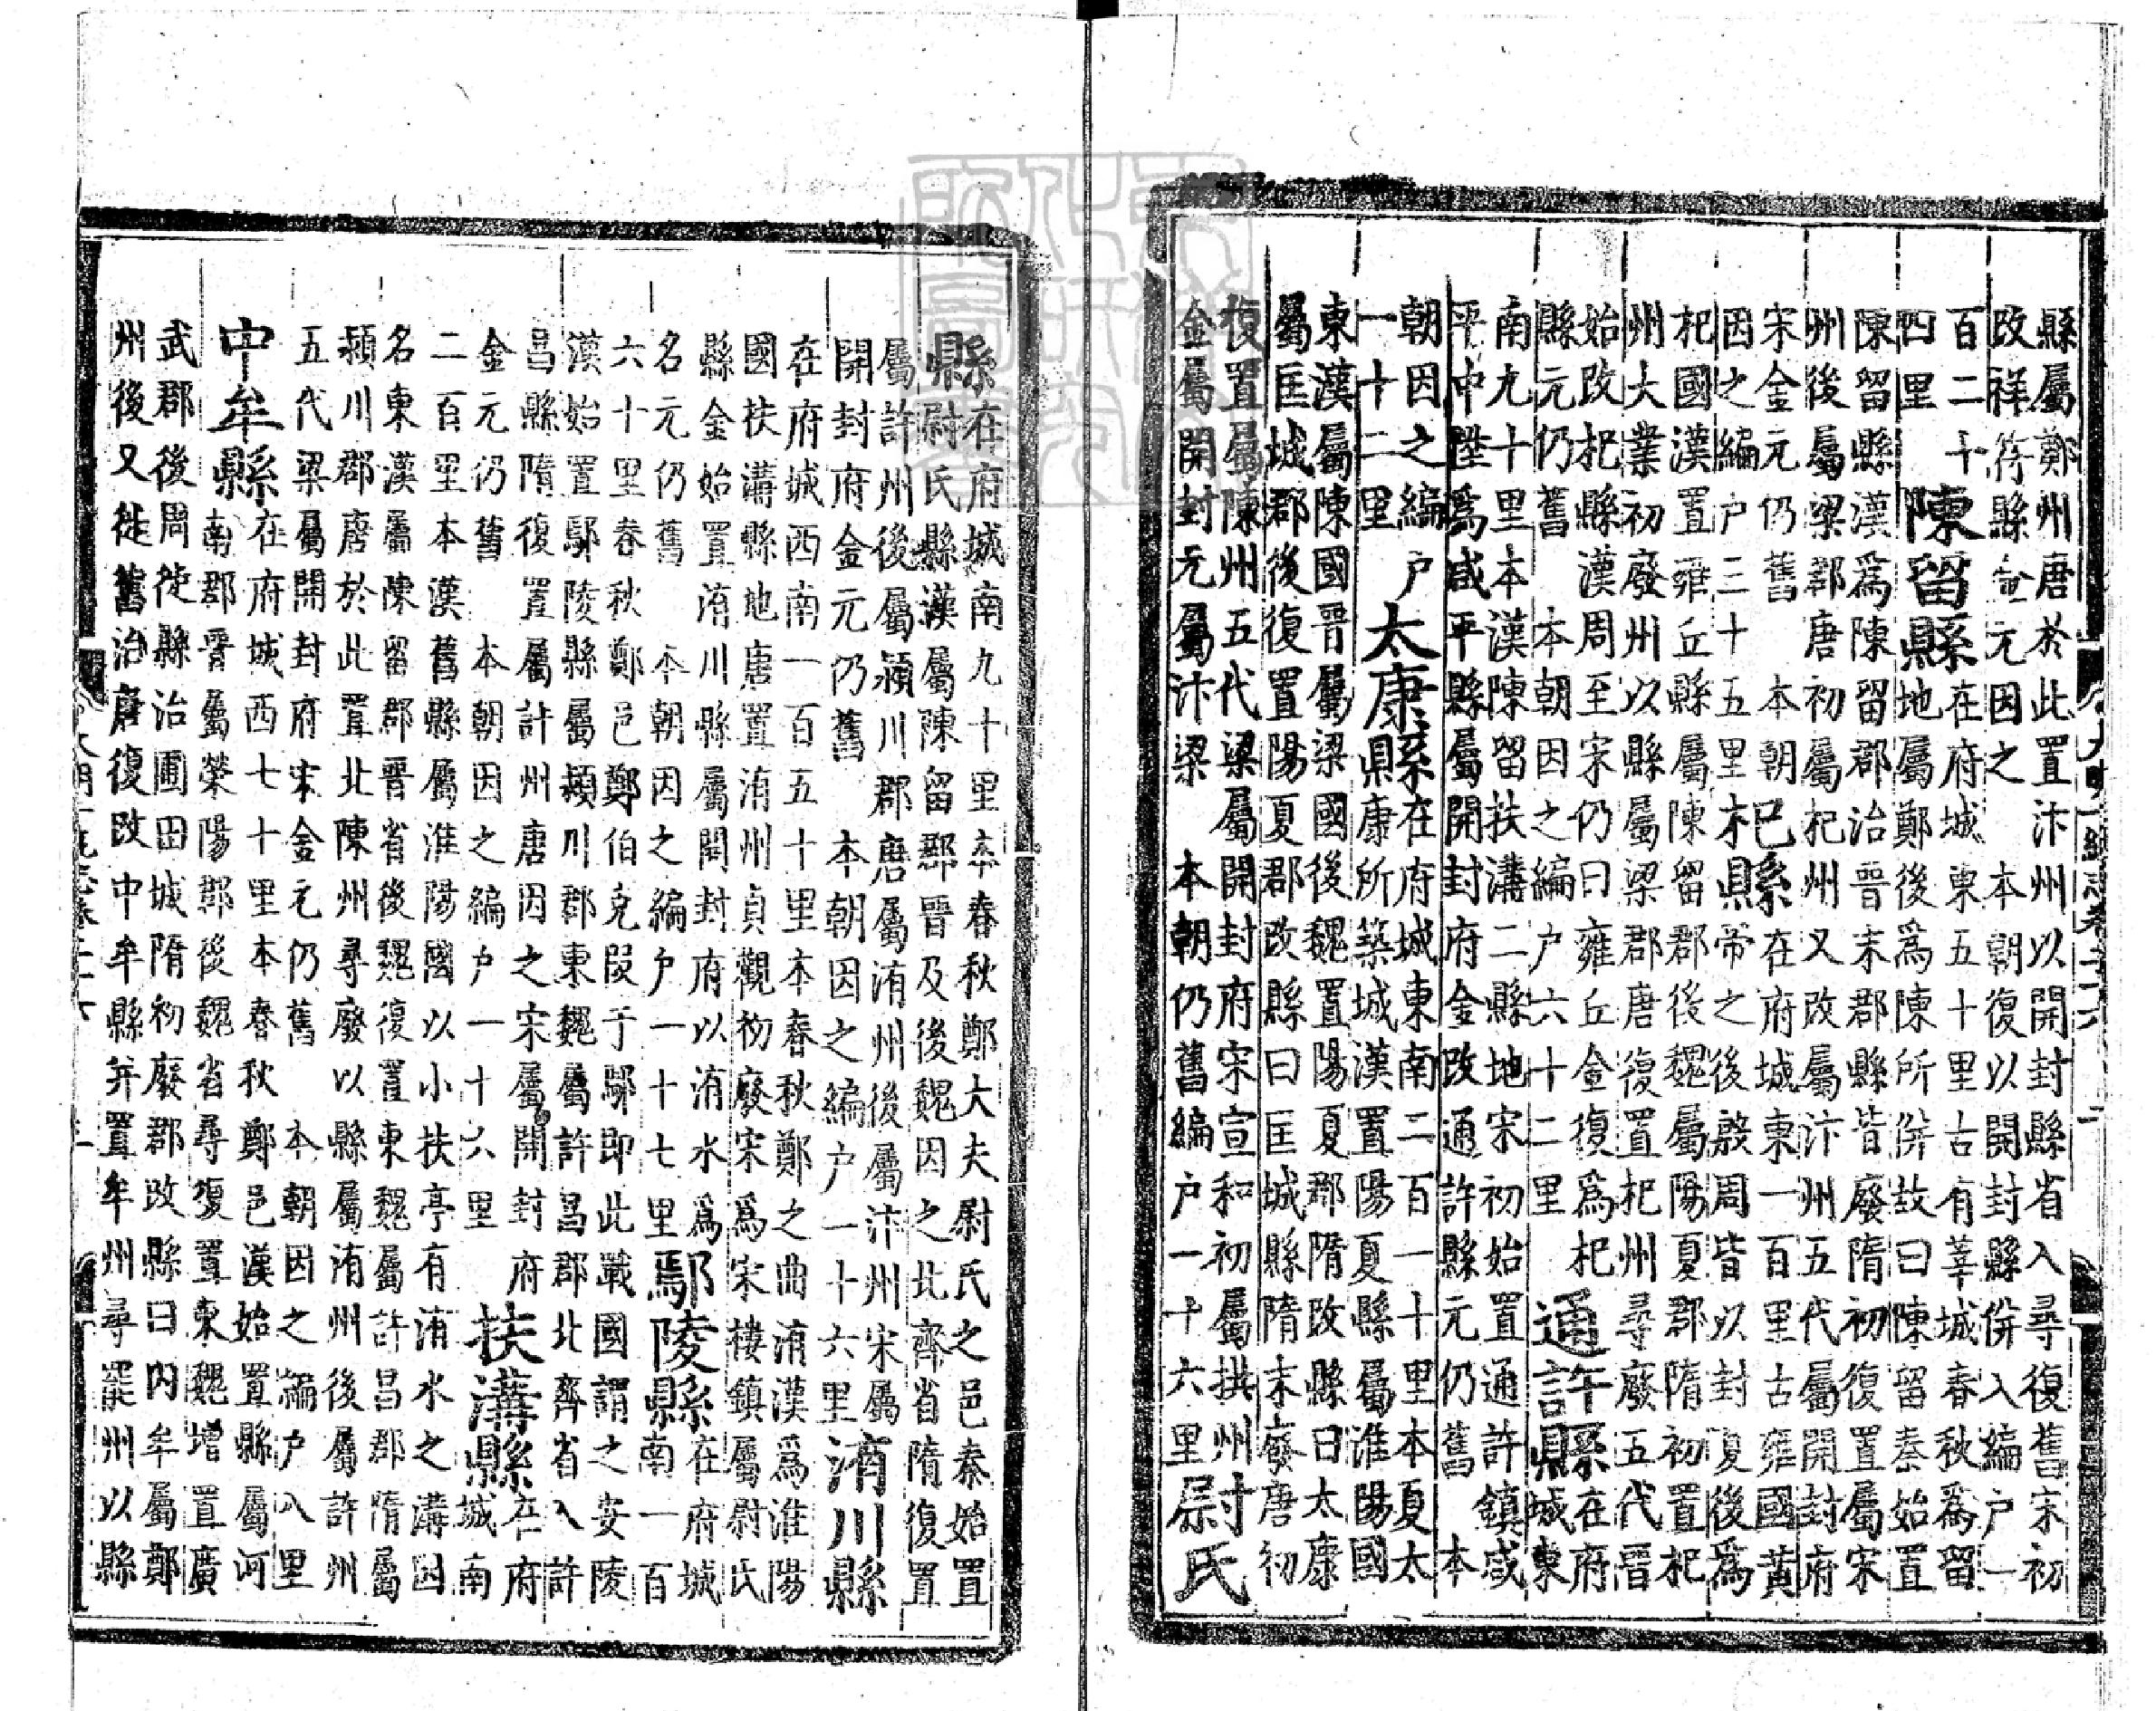 縣屬鄭州唐於此置汴州以開封縣省入尋復舊宋初
改祥符縣金元因之 本朝復以開封縣併入編户一
百二十
四里
陳留縣
在府城東五十里古有莘城春秋爲留
地屬鄭後爲陳所併故曰陳留秦始置
陳留縣漢爲陳留郡治晉末郡縣皆廢隋初復置屬宋
州後屬梁郡唐初屬杞州又改屬汴州五代屬開封府
宋金元仍舊 本朝
因之編户三十五里
杞縣
在府城東一百里古雍國黄
帝之後殷周皆以封夏後爲
杞國漢置雍丘縣屬陳留郡後魏屬陽夏郡隋初置杞
州大業初廢州以縣屬梁郡唐復置杞州尋廢五代晉
始改杞縣漢周至宋仍曰雍丘金復爲杞
縣元仍舊 本朝因之編户六十二里
通許縣
在府
城東
南九十里本漢陳留扶溝二縣地宋初始置通許鎮咸
平中陞爲咸平縣屬開封府金改通許縣元仍舊 本
朝因之編户
一十二里
太康縣
在府城東南二百一十里本夏太
康所築城漢置陽夏縣屬淮陽國
東漢屬陳國晉屬梁國後魏置陽夏郡隋改縣曰太康
屬匡城郡後復置陽夏郡改縣曰匡城縣隋末廢唐初
復置屬陳州五代梁屬開封府宋宣和初屬拱州
金屬開封元屬汴梁 本朝仍舊編户一十六里
尉氏
縣
在府城南九十里本春秋鄭大夫尉氏之邑秦始置
尉氏縣漢屬陳留郡晉及後魏因之北齊省隋復置
屬許州後屬潁川郡唐屬洧州後屬汴州宋屬
開封府金元仍舊 本朝因之編户一十六里
洧川縣
在府城西南一百五十里本春秋鄭之曲洧漢爲淮陽
國扶溝縣地唐置洧州貞觀初廢宋爲宋樓鎮屬尉氏
縣金始置洧川縣屬開封府以洧水爲
名元仍舊 本朝因之編户一十七里
鄢陵縣
在府城
南一百
六十里春秋鄭邑鄭伯克段于鄢即此戰國謂之安陵
漢始置鄢陵縣屬潁川郡東魏屬許昌郡北齊省入許
昌縣隋復置屬許州唐因之宋屬開封府
金元仍舊 本朝因之編户一十六里
扶溝縣
在府
城南
二百里本漢舊縣屬淮陽國以小扶亭有洧水之溝因
名東漢屬陳留郡晉省後魏復置東魏屬許昌郡隋屬
潁川郡唐於此置北陳州尋廢以縣屬洧州後屬許州
五代梁屬開封府宋金元仍舊 本朝因之編户八里
中牟縣
在府城西七十里本春秋鄭邑漢始置縣屬河
南郡晉屬滎陽郡後魏省尋復置東魏增置廣
武郡後周徙縣治圃田城隋初廢郡改縣曰内牟屬鄭
州後又徙舊治唐復改中牟縣并置牟州尋罷州以縣